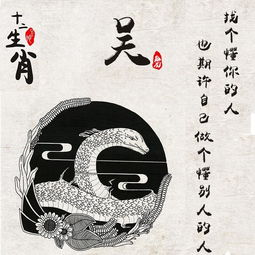 十二生肖
吴
找个懂你的人
也期许自己做个懂别人的人